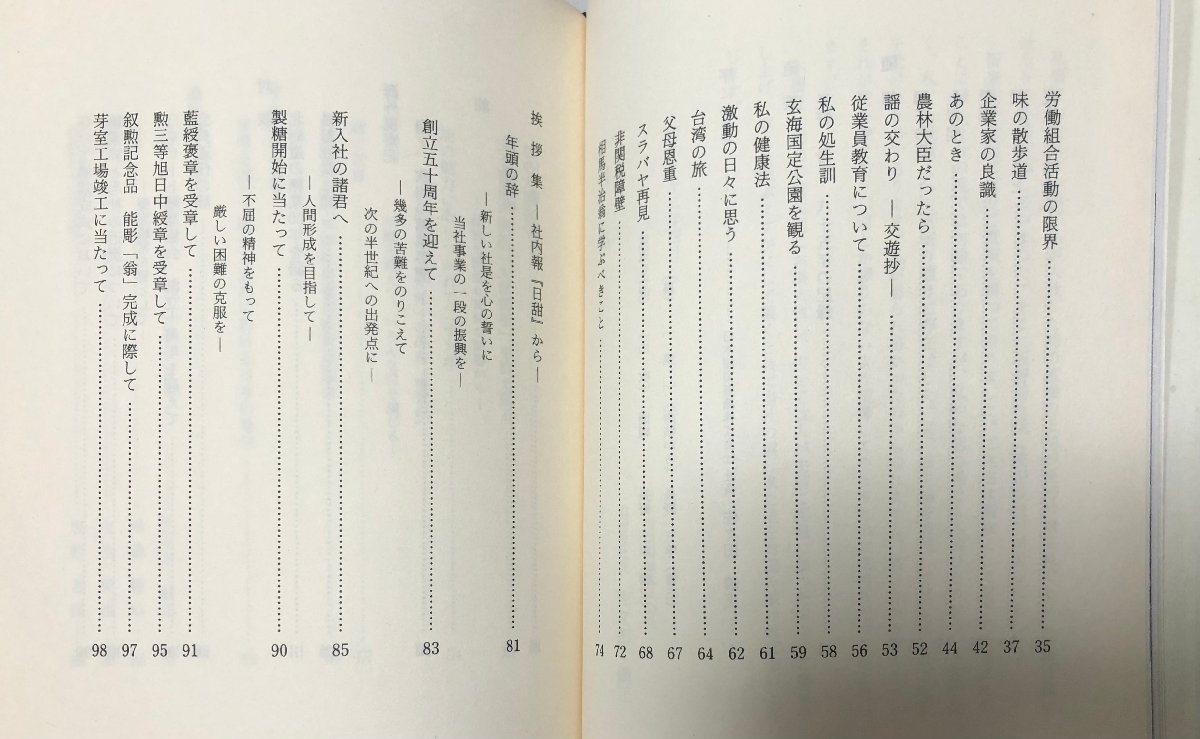 労働組合活動の限界……………35
味の散歩道……………37
企業家の良識……………42
あのとき……………44
農林大臣だったら……………52
謡の交わり ―交遊抄―……………53
従業員教育について……………56
私の処生訓……………58
玄海国定公園を観る……………59
私の健康法……………61
激動の日々に思う……………62
台湾の旅……………64
父母恩重……………67
スラバヤ再見……………68
非関税障壁……………72
相馬半治翁に学ぶべきこと……………74
挨拶集 ―社内報『日甜』から―
年頭の辞……………81
―新しい社是を心の誓いに
当社事業の一段の振興を―
創立五十周年を迎えて……………83
―幾多の苦難をのりこえて
次の半世紀への出発点に―
新入社の諸君へ……………85
―人間形成を目指して―
製糖開始に当たって……………90
―不屈の精神をもって
厳しい困難の克服を―
藍綬褒章を受章して……………91
勲三等旭日中綬章を受章して……………95
叙勲記念品 能彫「翁」完成に際して……………97
芽室工場竣工に当たって……………98